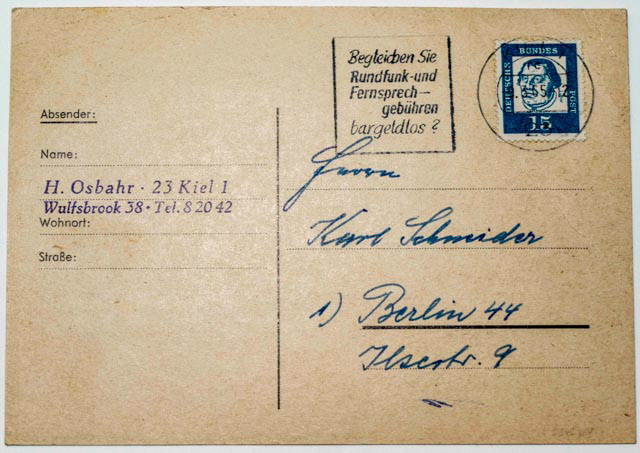 Begleichen Sie
Rundfunk-und
Fernsprech-
gebühren
bargeldlos?
DEUTSCHE BUNDES POST
15
Absender:
Name:
H. Osbahr · 23 Kiel 1
Wulfsbrook 38 · Tel. 8 20 42
Wohnort:
Straße:
Herrn
Karl Schneider
1) Berlin 44
Ilsestr. 9